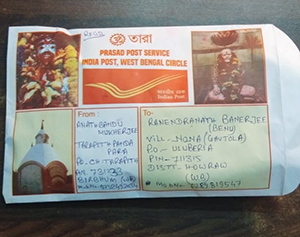 ॐ তারা
PRASAD POST SERVICE
INDIA POST, WEST BENGAL CIRCLE
भारतीय डाक
India Post
From :
ANATH BANDHU
MUKHERJEE
TARAPITH PANDA
PARA
PO. CHITARAPITH
731233
BIRBHUM (WB)
To :
RANENDRANATH BANERJEE
(BENU)
VILL- NONA (GAYTOLA)
P.O- ULUBERIA
PIN- 711315
DISTT HOWRAH
(WB)